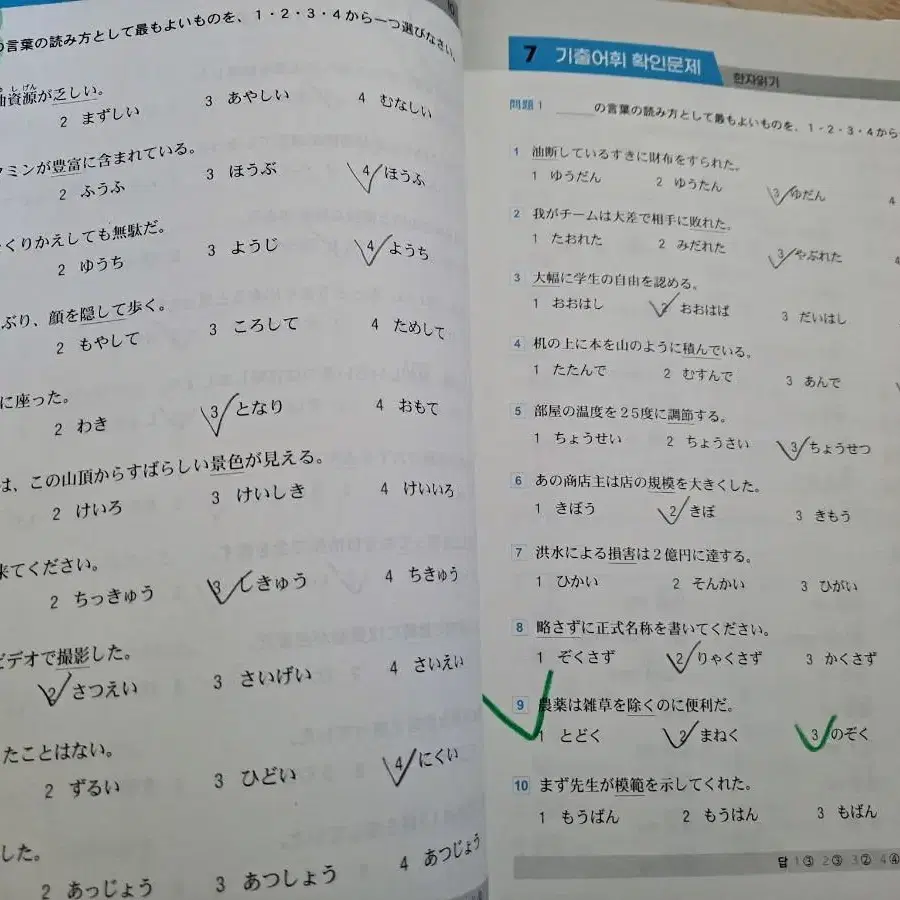 の言葉の読み方として最もよいものを、1・2・3・4から一つ選びなさい。
資源が乏しい。
2 まずしい 3 あやしい 4 むなしい
タミンが豊富に含まれている。
2 ふうふ 3 ほうぶ 4 ほうふ
くりかえしても無駄だ。
2 ゆうち 3 ようじ 4 ようち
ぶり、顔を隠して歩く。
2 もやして 3 ころして 4 ためして
に座った。
2 わき 3 となり 4 おもて
は、この山頂からすばらしい景色が見える。
2 けいろ 3 けいしき 4 けいいろ
来てください。
2 ちっきゅう 3 しきゅう 4 ちきゅう
ビデオで撮影した。
2 さつえい 3 さいげい 4 さいえい
たことはない。
2 ずるい 3 ひどい 4 にくい
した。
2 あっじょう 3 あつしょう 4 あつじょう
7 기출어휘 확인문제 한자읽기
問題1 ____の言葉の読み方として最もよいものを、1・2・3・4から
1 油断しているすきに財布をすられた。
1 ゆうだん 2 ゆうたん 3 ゆだん 4
2 我がチームは大差で相手に敗れた。
1 たおれた 2 みだれた 3 やぶれた 4
3 大幅に学生の自由を認める。
1 おおはし 2 おおはば 3 だいはし
4 机の上に本を山のように積んでいる。
1 たたんで 2 むすんで 3 あんで
5 部屋の温度を25度に調節する。
1 ちょうせい 2 ちょうさい 3 ちょうせつ
6 あの商店主は店の規模を大きくした。
1 きぼう 2 きぼ 3 きもう
7 洪水による損害は2億円に達する。
1 ひかい 2 そんかい 3 ひがい
8 略さずに正式名称を書いてください。
1 ぞくさず 2 りゃくさず 3 かくさず
9 農薬は雑草を除くのに便利だ。
1 とどく 2 まねく 3 のぞく
10 まず先生が模範を示してくれた。
1 もうばん 2 もうはん 3 もばん
답 1③ 2③ 3② 4④